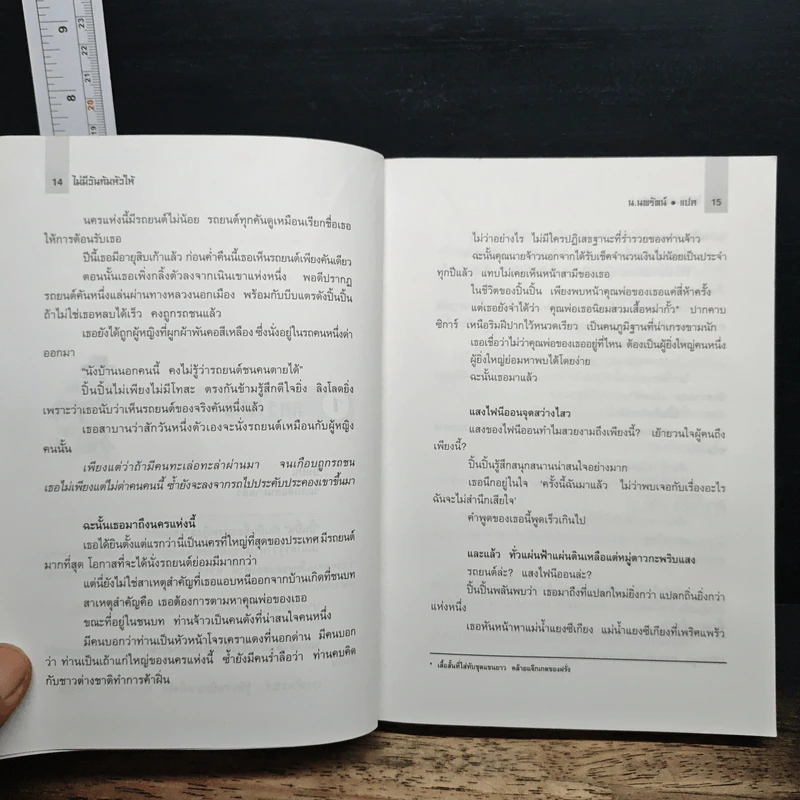 9
8
23
22
21
20
19
14 ไม่มีวันก้มหัวให้
นครแห่งนี้มีรถยนต์ไม่น้อย รถยนต์ทุกคันดูเหมือนเรียกชื่อเธอ
ให้การต้อนรับเธอ
ปีนี้เธอมีอายุสิบเก้าแล้ว ก่อนค่ำคืนนี้เธอเห็นรถยนต์เพียงคันเดียว
ตอนนั้นเธอเพิ่งกลิ้งตัวลงจากเนินเขาแห่งหนึ่ง พอดีปรากฏ
รถยนต์คันหนึ่งแล่นผ่านทางหลวงนอกเมือง พร้อมกับบีบแตรดังปิ้นปิ้น
ถ้าไม่ใช่เธอหลบได้เร็ว คงถูกรถชนแล้ว
เธอยังได้ถูกผู้หญิงที่ผูกผ้าพันคอสีเหลือง ซึ่งนั่งอยู่ในรถคนหนึ่งด่า
ออกมา
“นังบ้านนอกคนนี้ คงไม่รู้ว่ารถยนต์ชนคนตายได้”
ปิ้นปิ้นไม่เพียงไม่มีโทสะ ตรงกันข้ามรู้สึกดีใจยิ่ง ลิงโลดยิ่ง
เพราะว่าเธอนับว่าเห็นรถยนต์ของจริงคันหนึ่งแล้ว
เธอสาบานว่าสักวันหนึ่งตัวเองจะนั่งรถยนต์เหมือนกับผู้หญิง
คนนั้น
เพียงแต่ว่าถ้ามีคนทะเล่อทะล่าผ่านมา จนเกือบถูกรถชน
เธอไม่เพียงแต่ไม่ด่าคนคนนี้ ซ้ำยังจะลงจากรถไปประคับประคองเขาขึ้นมา
ฉะนั้นเธอมาถึงนครแห่งนี้
เธอได้ยินตั้งแต่แรกว่านี่เป็นนครที่ใหญ่ที่สุดของประเทศ มีรถยนต์
มากที่สุด โอกาสที่จะได้นั่งรถยนต์ย่อมมีมากกว่า
แต่นี่ยังไม่ใช่สาเหตุสำคัญที่เธอแอบหนีออกจากบ้านเกิดที่ชนบท
สาเหตุสำคัญคือ เธอต้องการตามหาคุณพ่อของเธอ
ขณะที่อยู่ในชนบท ท่านจ้าวเป็นคนดังที่น่าสนใจคนหนึ่ง
มีคนบอกว่าท่านเป็นหัวหน้าโจรเคราแดงที่นอกด่าน มีคนบอก
ว่า ท่านเป็นเถ้าแก่ใหญ่ของนครแห่งนี้ ซ้ำยังมีคนร่ำลือว่า ท่านคบคิด
กับชาวต่างชาติทำการค้าฝิ่น
น.นพรัตน์ ● แปล 15
ไม่ว่าอย่างไร ไม่มีใครปฏิเสธฐานะที่ร่ำรวยของท่านจ้าว
ฉะนั้นคุณนายจ้าวนอกจากได้รับเช็คจำนวนเงินไม่น้อยเป็นประจำ
ทุกปีแล้ว แทบไม่เคยเห็นหน้าสามีของเธอ
ในชีวิตของปิ้นปิ้น เพียงพบหน้าคุณพ่อของเธอแค่สี่ห้าครั้ง
แต่เธอยังจำได้ว่า คุณพ่อเธอนิยมสวมเสื้อหม่ากั้ว* ปากคาบ
ซิการ์ เหนือริมฝีปากไว้หนวดเรียว เป็นคนภูมิฐานที่น่าเกรงขามนัก
เธอเชื่อว่าไม่ว่าคุณพ่อของเธออยู่ที่ไหน ต้องเป็นผู้ยิ่งใหญ่คนหนึ่ง
ผู้ยิ่งใหญ่ย่อมหาพบได้โดยง่าย
ฉะนั้นเธอมาแล้ว
แสงไฟนีออนจุดสว่างไสว
แสงของไฟนีออนทำไมสวยงามถึงเพียงนี้? เย้ายวนใจผู้คนถึง
เพียงนี้?
ปิ้นปิ้นรู้สึกสนุกสนานน่าสนใจอย่างมาก
เธอนึกอยู่ในใจ ‘ครั้งนี้ฉันมาแล้ว ไม่ว่าพบเจอกับเรื่องอะไร
ฉันจะไม่สำนึกเสียใจ’
คำพูดของเธอนี้พูดเร็วเกินไป
และแล้ว ทั่วแผ่นฟ้าแผ่นดินเหลือแต่หมู่ดาวกะพริบแสง
รถยนต์ล่ะ? แสงไฟนีออนล่ะ?
ปิ้นปิ้นพลันพบว่า เธอมาถึงที่แปลกใหม่ยิ่งกว่า แปลกถิ่นยิ่งกว่า
แห่งหนึ่ง
เธอหันหน้าหาแม่น้ำแยงซีเกียง แม่น้ำแยงซีเกียงที่เพริศแพร้ว
* เสื้อสั้นที่ใส่ทับชุดแขนยาว คล้ายแจ๊กเกตของฝรั่ง